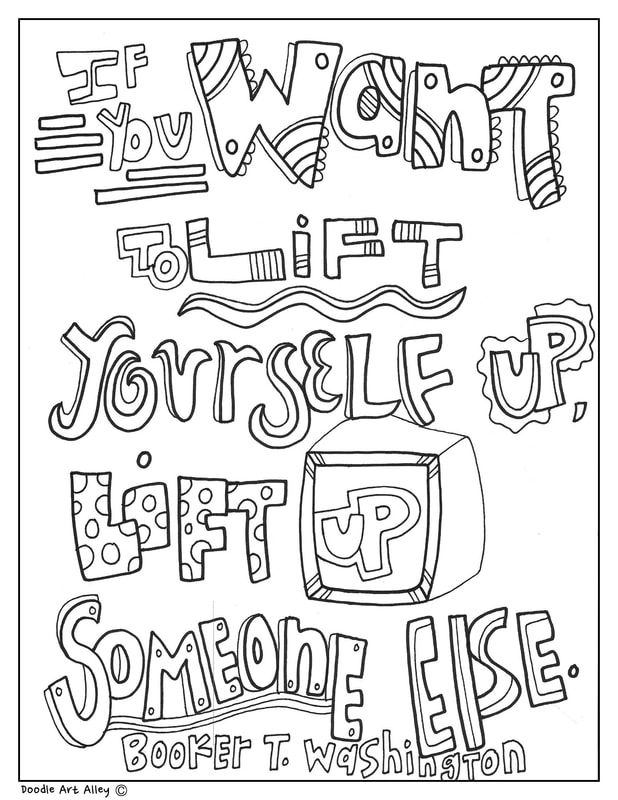 IF
YOU Want
TO LiFT
YOURSELF UP,
LiFT UP
SOMEONE ELSE.
BOOKER T. Washington
Doodle Art Alley ©